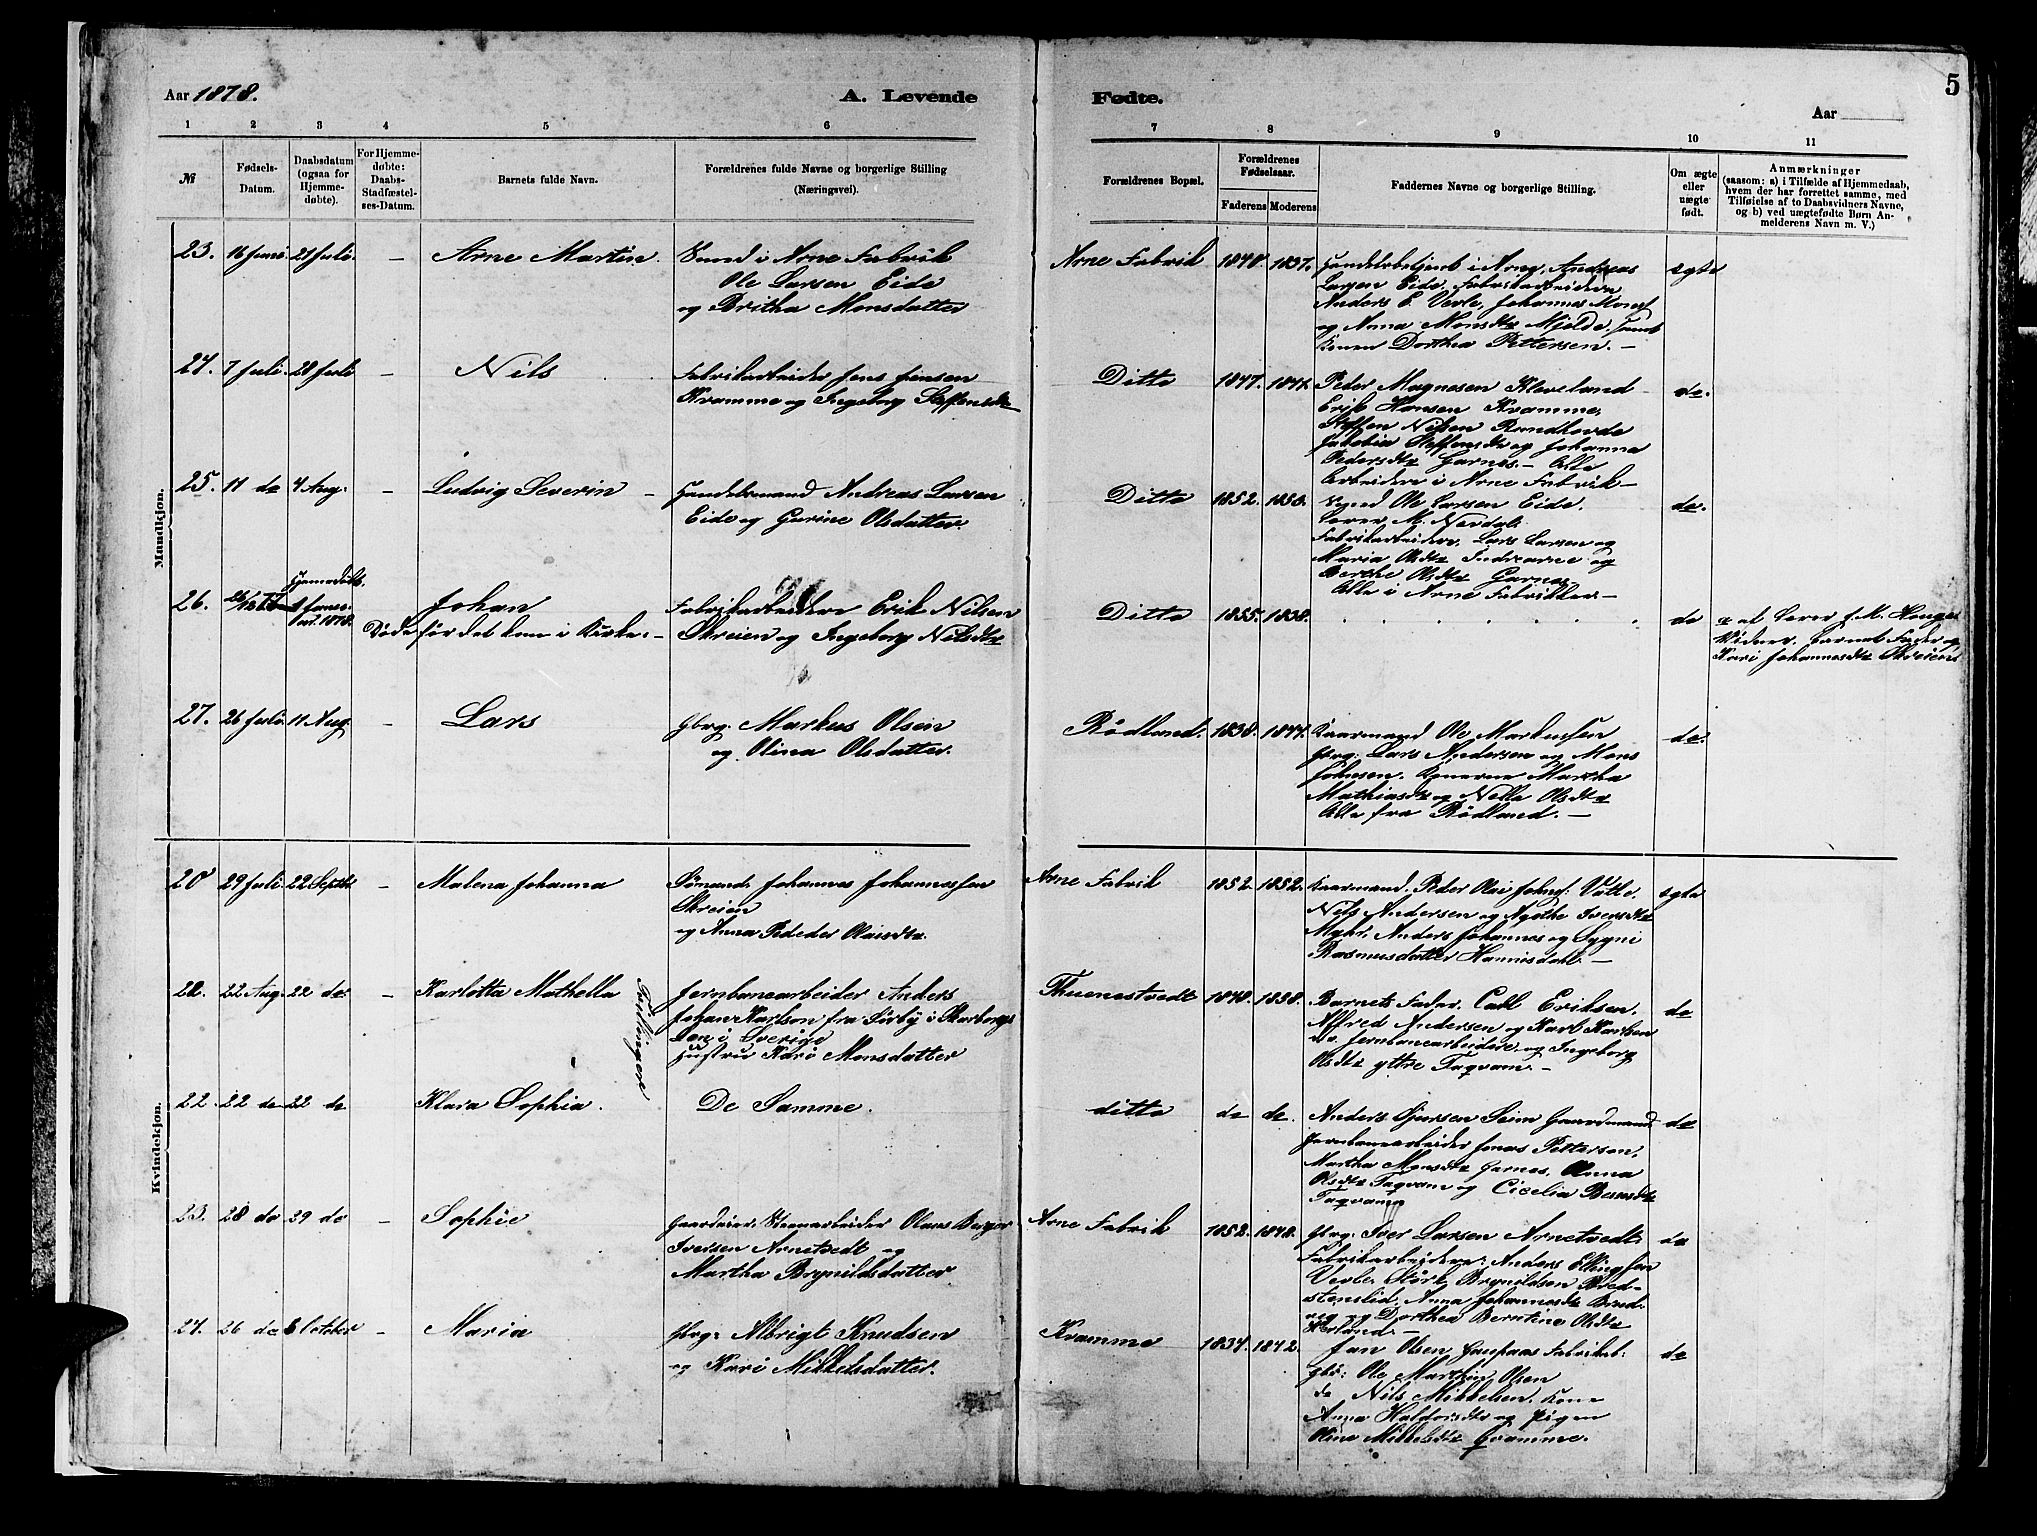 Aar 1878.
A. Levende
Fødte.
5
Aar
1 2 3 4 5 6 7 8 9 10 11
№
Fødsels-
Datum.
Daabsdatum
(ogsaa for
Hjemme-
døbte).
For Hjemme-
døbte:
Daabs-
Stadfæstel-
ses-Datum.
Barnets fulde Navn.
Forældrenes fulde Navne og borgerlige Stilling
(Næringsvei).
Forældrenes Bopæl.
Forældrenes
Fødselsaar.
Faderens Moderens
Faddernes Navne og borgerlige Stilling.
Om ægte
eller
uægte
født.
Anmærkninger
(saasom: a) i Tilfælde af Hjemmedaab,
hvem der har forrettet samme, med
Tilføielse af to Daabsvidners Navne,
og b) ved uægtefødte Børn An-
melderens Navn m. V.)
Mandkjøn.
23. 16 Juni 21 Juli. - Arne Martin.
Smed i Arne Fabrik
Ole Larsen Eide
og Britha Monsdatter
Arne Fabrik 1840. 1837.
Handelsbetjent i Arne, Andreas
Larsen Eide, Fabrikarbeidere
Anders E. Verle, Johannes
og Anna Monsdtr Mjelde, samt
Konen Dorthea Pettersen. -
ægte
24. 7 Juli. 28 Juli - Nils
Fabrikarbeider Jens Jensen
Kramme og Ingeborg Steffensdtr
Ditto 1847. 1847.
Peder Magnesen Kleveland
Erik Hansen Kramme,
Steffen Nilsen
Jakobia Steffensdtr og Johanna
Pedersdtr Garnes. - Alle
Arbeidere i Arne Fabrik -
do.
25. 11 do 4 Aug. - Ludvig Severin -
Handelsmand Andreas Larsen
Eide og Gurine Olsdatter.
Ditto 1852. 1858.
Smed Ole Larsen Eide.
Lærer M. Nordal.
Fabrikarbeidere. Lars Larsen og
Maria Olsdtr Indrearne og
Berthe Olsdtr Garnes
Alle i Arne Fabrikker -
do.
26.
Hjemmedøbt
1878.
Johan
Døde før det kom i Kirke. -
Fabrikarbeidere Erik Nilsen
Skreien og Ingeborg Nilsdtr
Ditto 1855. 1838.
do
Vidner. Barnets Fader og
Kari Johannesdtr Skreien
27. 26 Juli. 11 Aug. - Lars
Gbrg. Markus Olsen
og Olina Olsdatter.
Rödland. 1838. 1844.
Kaarmand Ole Markussen
Gbrg. Lars Andersen og Mons
Johnsen. Konerne Martha
Mathiasdtr og Nella Olsdtr
Alle fra Rödland. -
do.
Kvindekjøn.
20 29 Juli. 22 Septbr - Malena Johanna
Sømand. Johannes Johannessen
Skreien
og Anna Pededer Olaisdtr.
Arne Fabrik 1852. 1852.
Kaarmand. Peder Olai Johns. Vatle.
Nils Andersen og Agothe Iversdtr
Myhr. Anders Johannes og Sygni
Rasmusdatter Hannisdahl. -
ægte
22. 22 Aug. 22 do - Karlotta Mathella
Tvillinger
Jernbanearbeider Anders
Johan Karlson fra Sörby i Skarborgs
Len i Sverige
Hustru Kari Monsdatter
Thuenestvedt 1848. 1838.
Barnets Fader. Carl Eriksen.
Alfred Andersen og Karl Karlsen
Jernbanearbeidere og Ingeborg
Olsdtr yttre Taqvam. -
do
22. 22 do 22 do Klara Sophia.
De Samme.
ditto do do.
Anders Sjursen Seim Gaardmand
Jernbanearbeider Jonas Pettersen.
Martha Monsdtr Garnes, Anna
Olsdtr Taqvam og Cicelia
Taqvam
do
23. 28 do 29 do - Sophie
Gaardeier. Steenarbeider Olaus Berger
Iversen Arnetvedt og
Martha Brynildsdatter
Arne Fabrik 1852. 1848.
Gbrg: Iver Larsen Arnetvedt.
Fabrikarbeidere: Anders Ellingsen
Verle. Størk Brynildsen Bred-
stenslid, Anna Johannesdtr
og Dorthea Berntine Olsdtr
do
24. 26 do 6 October - Maria
Gbrg: Albrigt Knudsen
og Kari Mikkelsdatter.
Kramme 1834. 1842.
Jan Olsen Gaupaas Fabrikat.
Gbr: Ole Marthin Olsen
do Nils Mikkelsen. Kone
Anna Haldorsdtr og Pigen
Oline Mikkelsdtr Gramme.
do